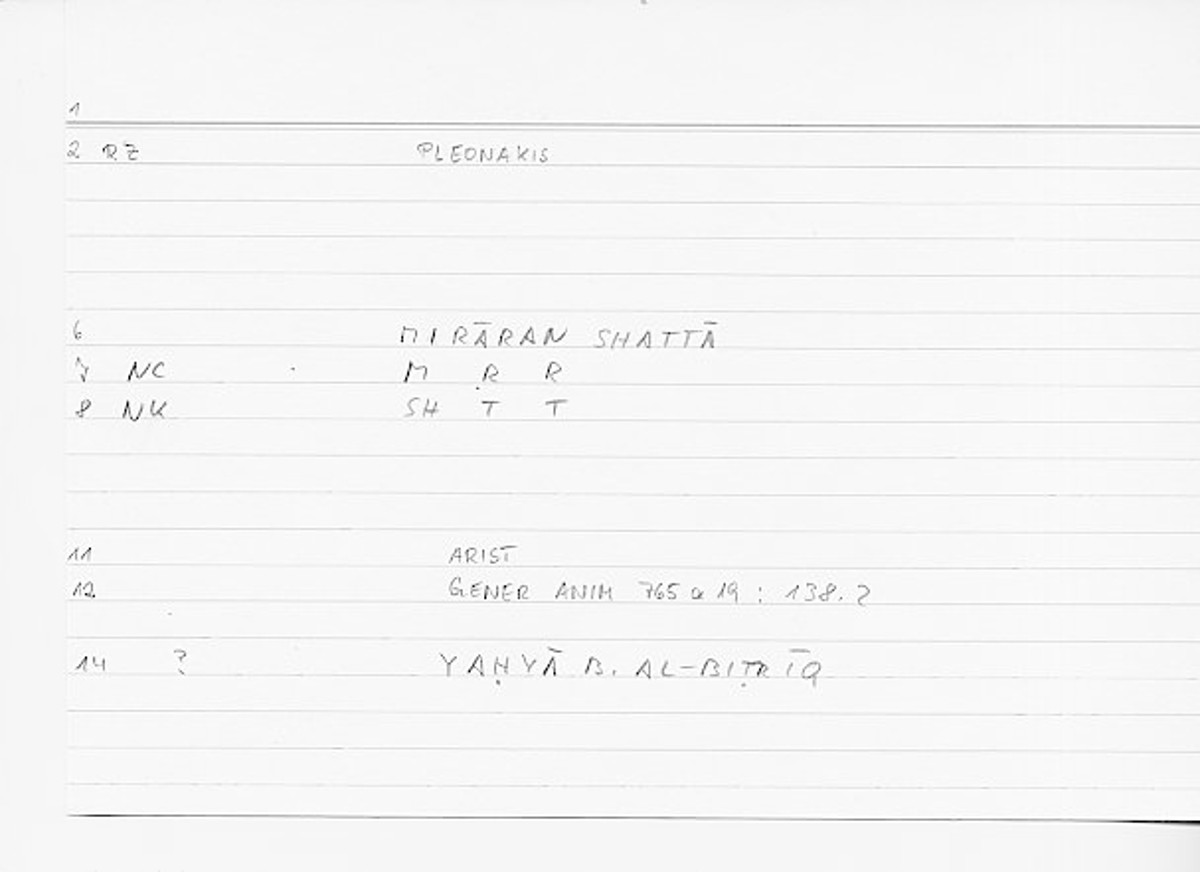 1
2 RZ PLEONAKIS
6 MIRĀRAN SHATTĀ
7 NC M R R
8 NK SH T T
11 ARIST
12 GENER ANIM 765 a 19 : 138. 2
14 ? YAḤYĀ B. AL-BIṬRĪQ